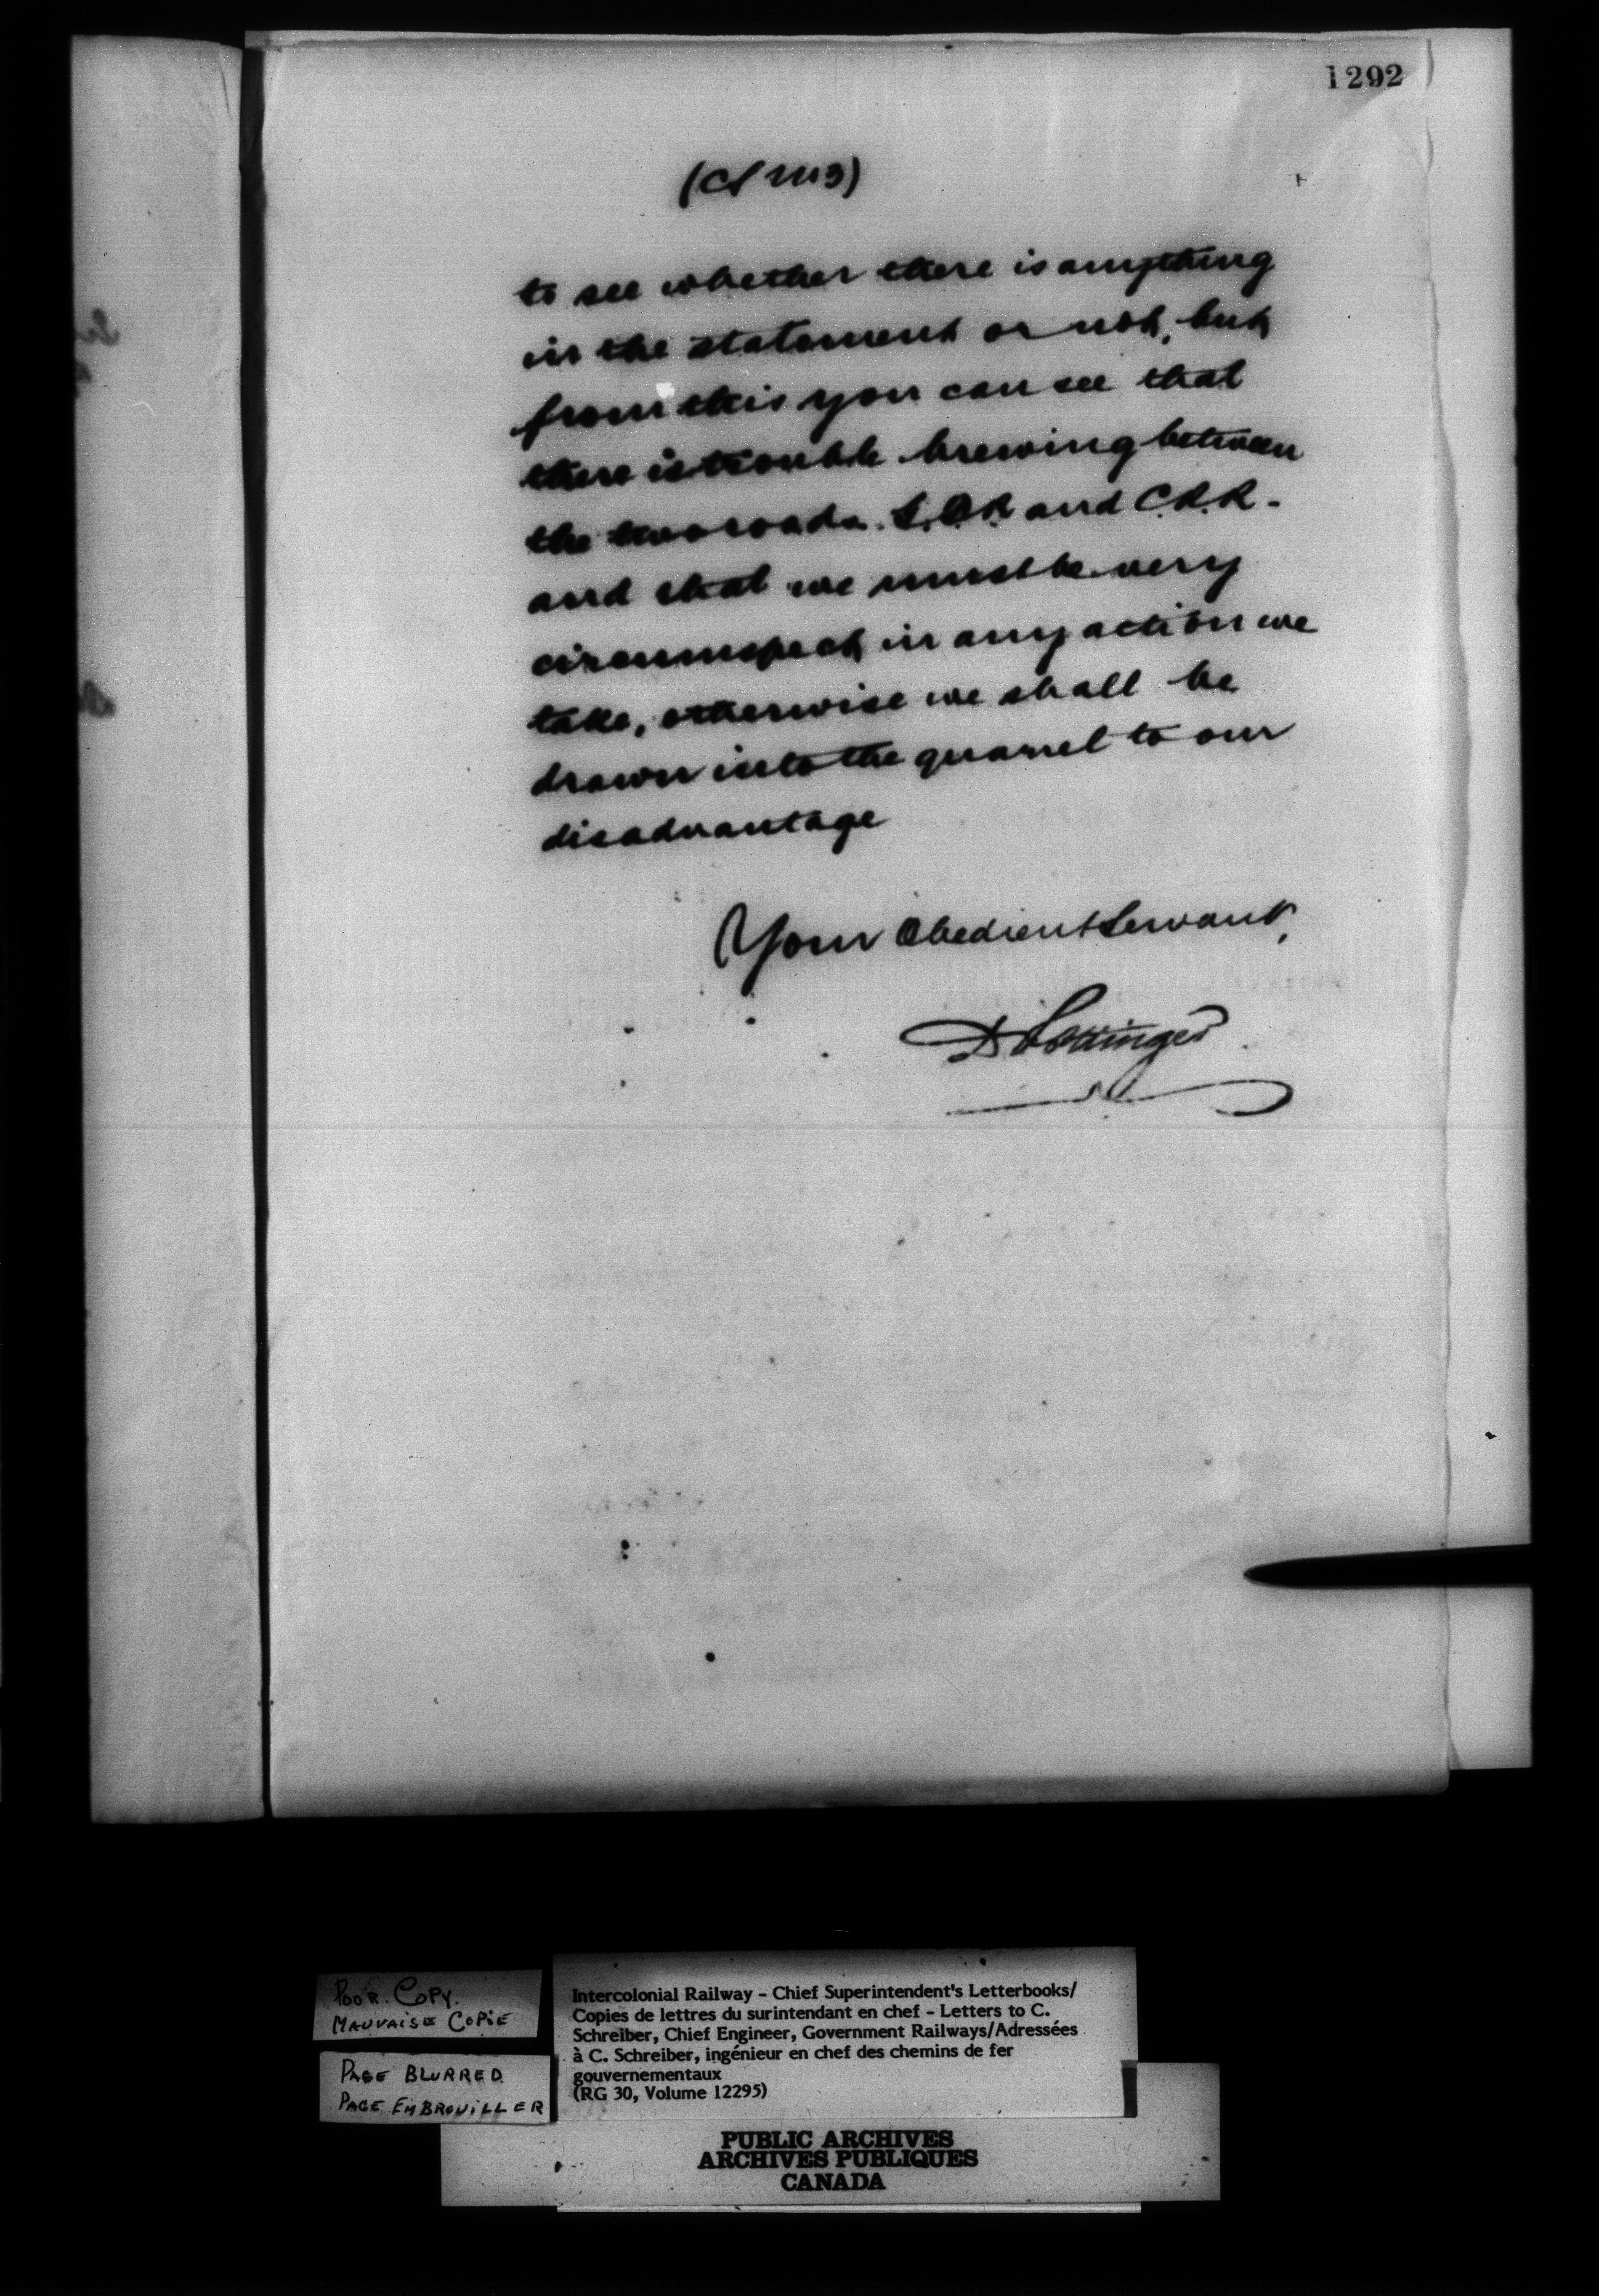 1292
to see whether there is anything
in the statement or not, but
from this you can see that
there is trouble brewing between
the two roads. and C.R.R.
and that we must be very
circumspect in any action we
take, otherwise we shall be
drawn into the quarrel to our
disadvantage
Your Obedient Servant,
D Pottinger
POOR COPY.
MAUVAISE COPIE
PAGE BLURRED
PAGE EMBROUILLER
Intercolonial Railway - Chief Superintendent's Letterbooks/
Copies de lettres du surintendant en chef - Letters to C.
Schreiber, Chief Engineer, Government Railways/Adressées
à C. Schreiber, ingénieur en chef des chemins de fer
gouvernementaux
(RG 30, Volume 12295)
PUBLIC ARCHIVES
ARCHIVES PUBLIQUES
CANADA